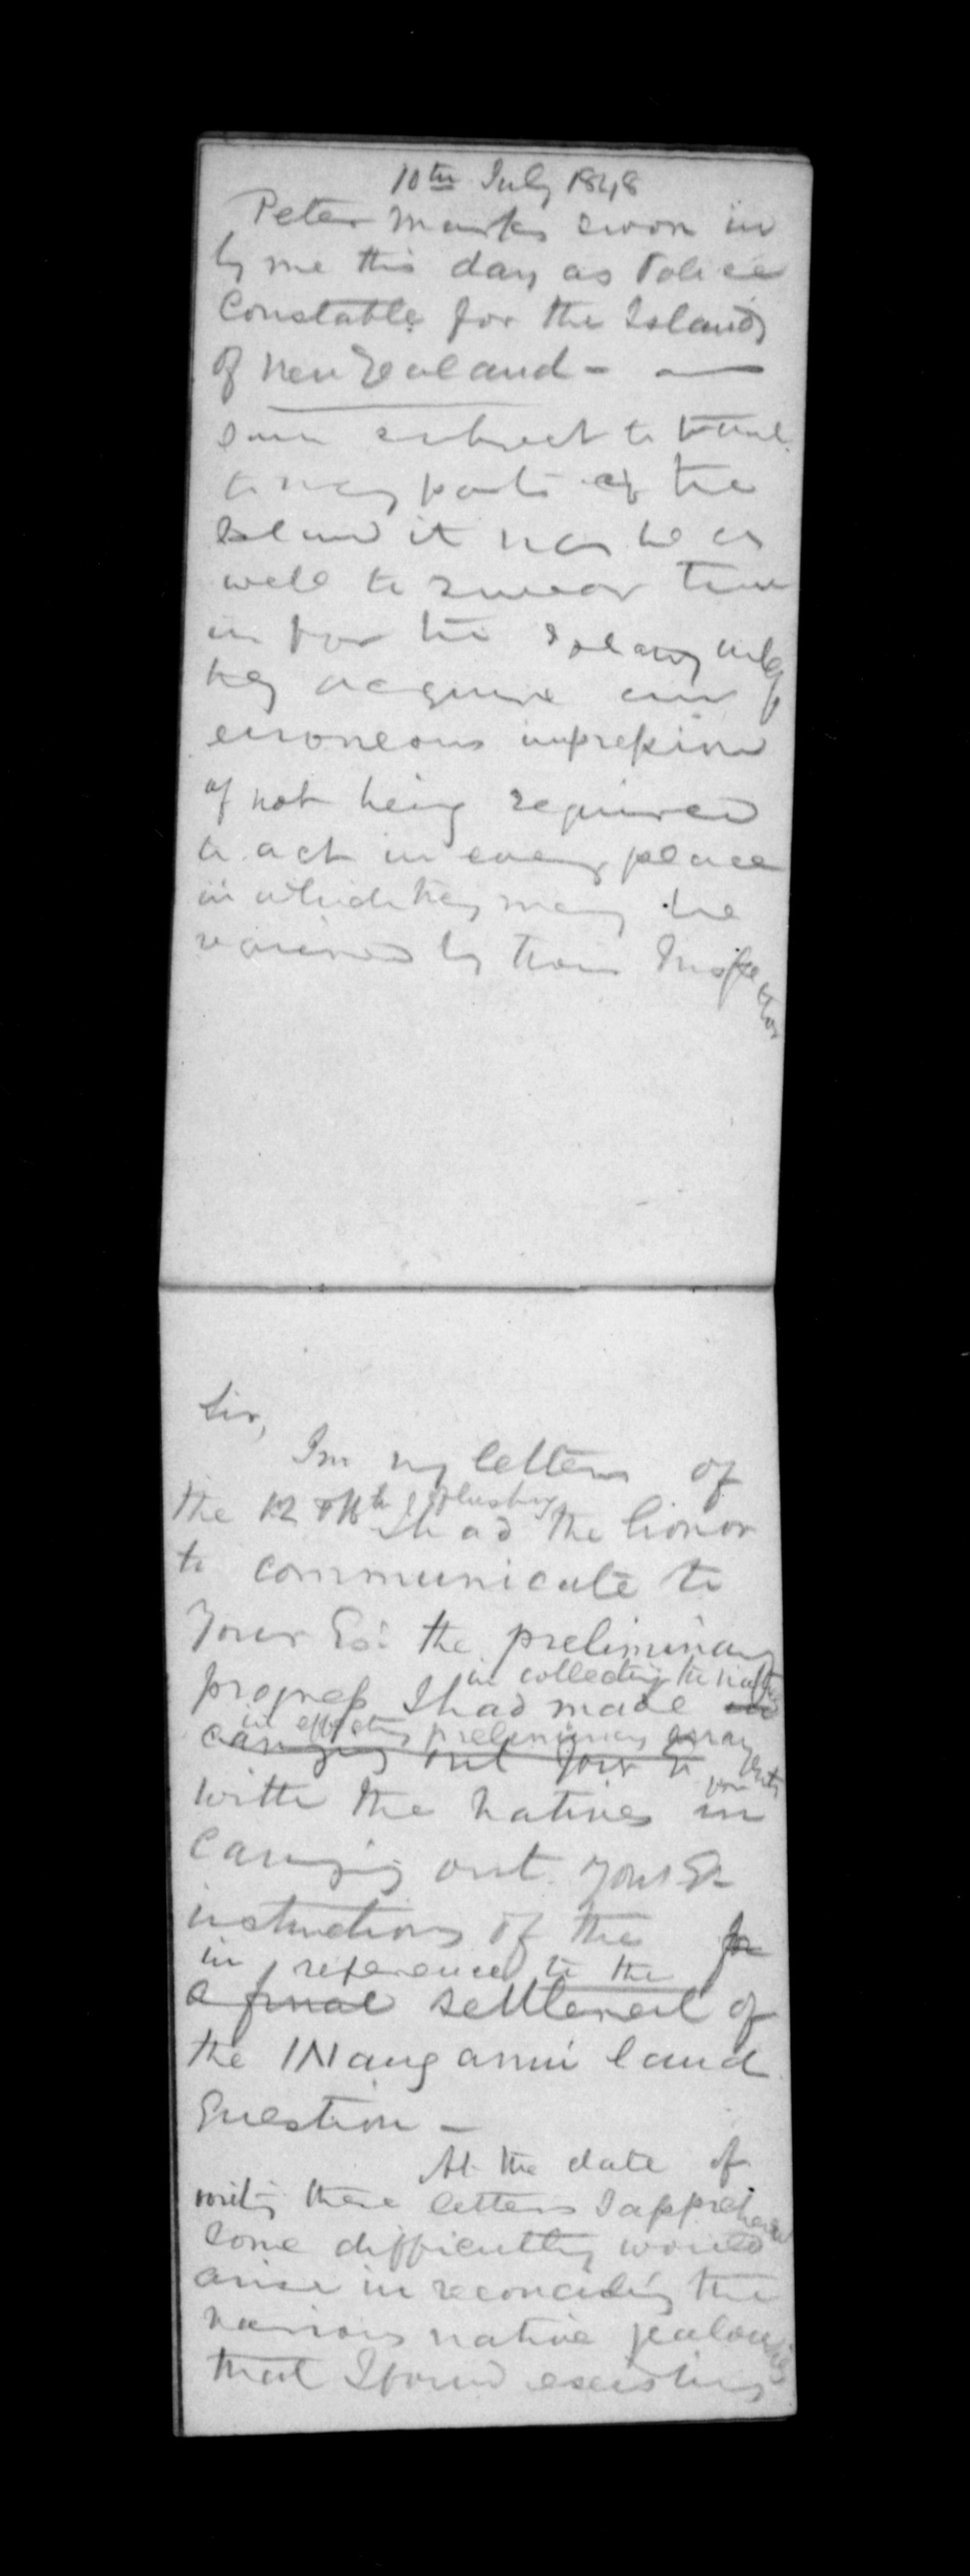 10th July 1848
Peter Marks sworn in
by me this day as Police
Constable for the Islands
of New Zealand -
subject to
to any parts of the
Island it may be as
well to swear them
in for the Islands
they acquire an
erroneous impression
of not being required
to act in every place
in which they may be
required by their Inspector
Sir,
In my letters of
the 12 & 16th I had the honor
to communicate to
Your Ex: the preliminary
in collecting the natives
progress I had made in
in effecting preliminary arrangements
carrying out your
with the natives in
carrying out your Ex
instructions of the
in reference to the
a final settlement of
the Wanganui land
Question -
At the date of
writing these letters I apprehended
some difficulty would
arise in reconciling the
various native jealousies
that I found existing